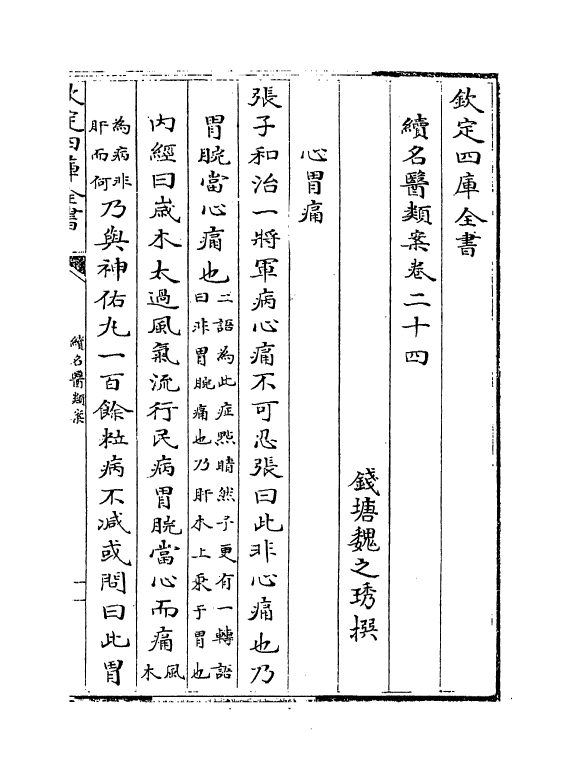 欽定四庫全書
續名醫類案卷二十四
錢塘魏之琇撰
心胃痛
張子和治一將軍病心痛不可忍張曰此非心痛也乃
胃脘當心痛也二語為此症㸃睛然予更有一轉語曰非胃脘痛也乃肝木上乘于胃也
內經曰歲木太過風氣流行民病胃脘當心而痛風木
為病非肝而何乃與神佑丸一百餘粒病不减或問曰此胃
欽定四庫全書
續名醫類案
一